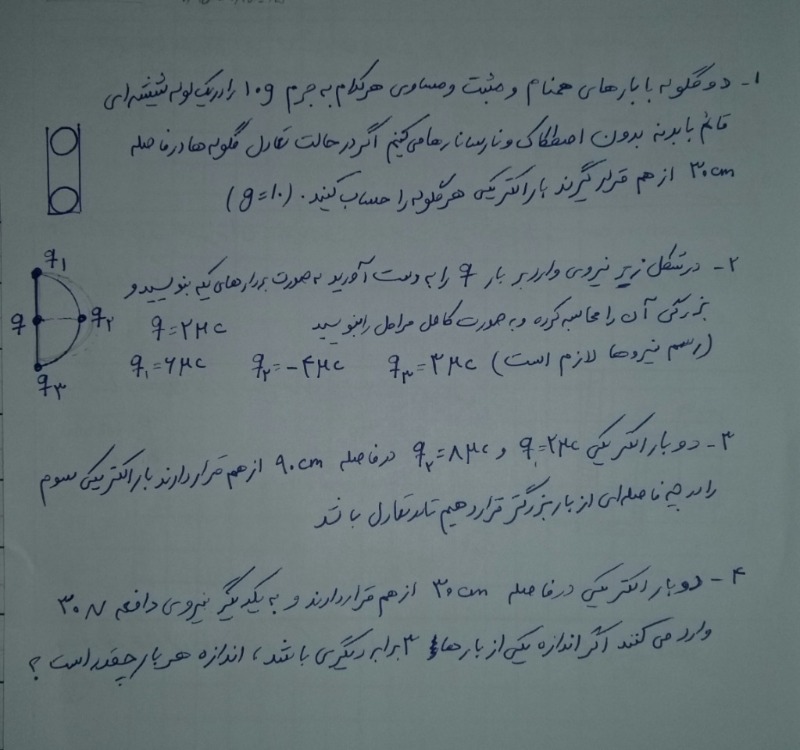 ۱- دو گلوله با بارهای همنام و مثبت و مساوی هرکدام به جرم ۱۰g را در یک لوله شیشه ای
قائم با بدنه بدون اصطکاک و نارسانا رها می کنیم اگر در حالت تعادل گلوله ها در فاصله
۳۰cm از هم قرار گیرند بار الکتریکی هر گلوله را حساب کنید. (g=۱۰)
۲- در شکل زیر نیروی وارد بر بار q را به دست آورید به صورت بردارهای یکه بنویسید و
بزرگی آن را محاسبه کرده و به صورت کامل مراحل را بنویسید
q=۲μc
(رسم نیروها لازم است) q۳=۳μc q۲=-۴μc q۱=۶μc
q۱
q q۲
q۳
۳- دو بار الکتریکی q۱=۲μc و q۲=۸μc در فاصله ۹۰cm از هم قرار دارند بار الکتریکی سوم
را در چه فاصله ای از بار بزرگتر قرار دهیم تا در تعادل باشد
۴- دو بار الکتریکی در فاصله ۳۰cm از هم قرار دارند و به یکدیگر نیروی دافعه ۳۰N
وارد می کنند اگر اندازه یکی از بارها ۳ برابر دیگری باشد، اندازه هر بار چقدر است؟